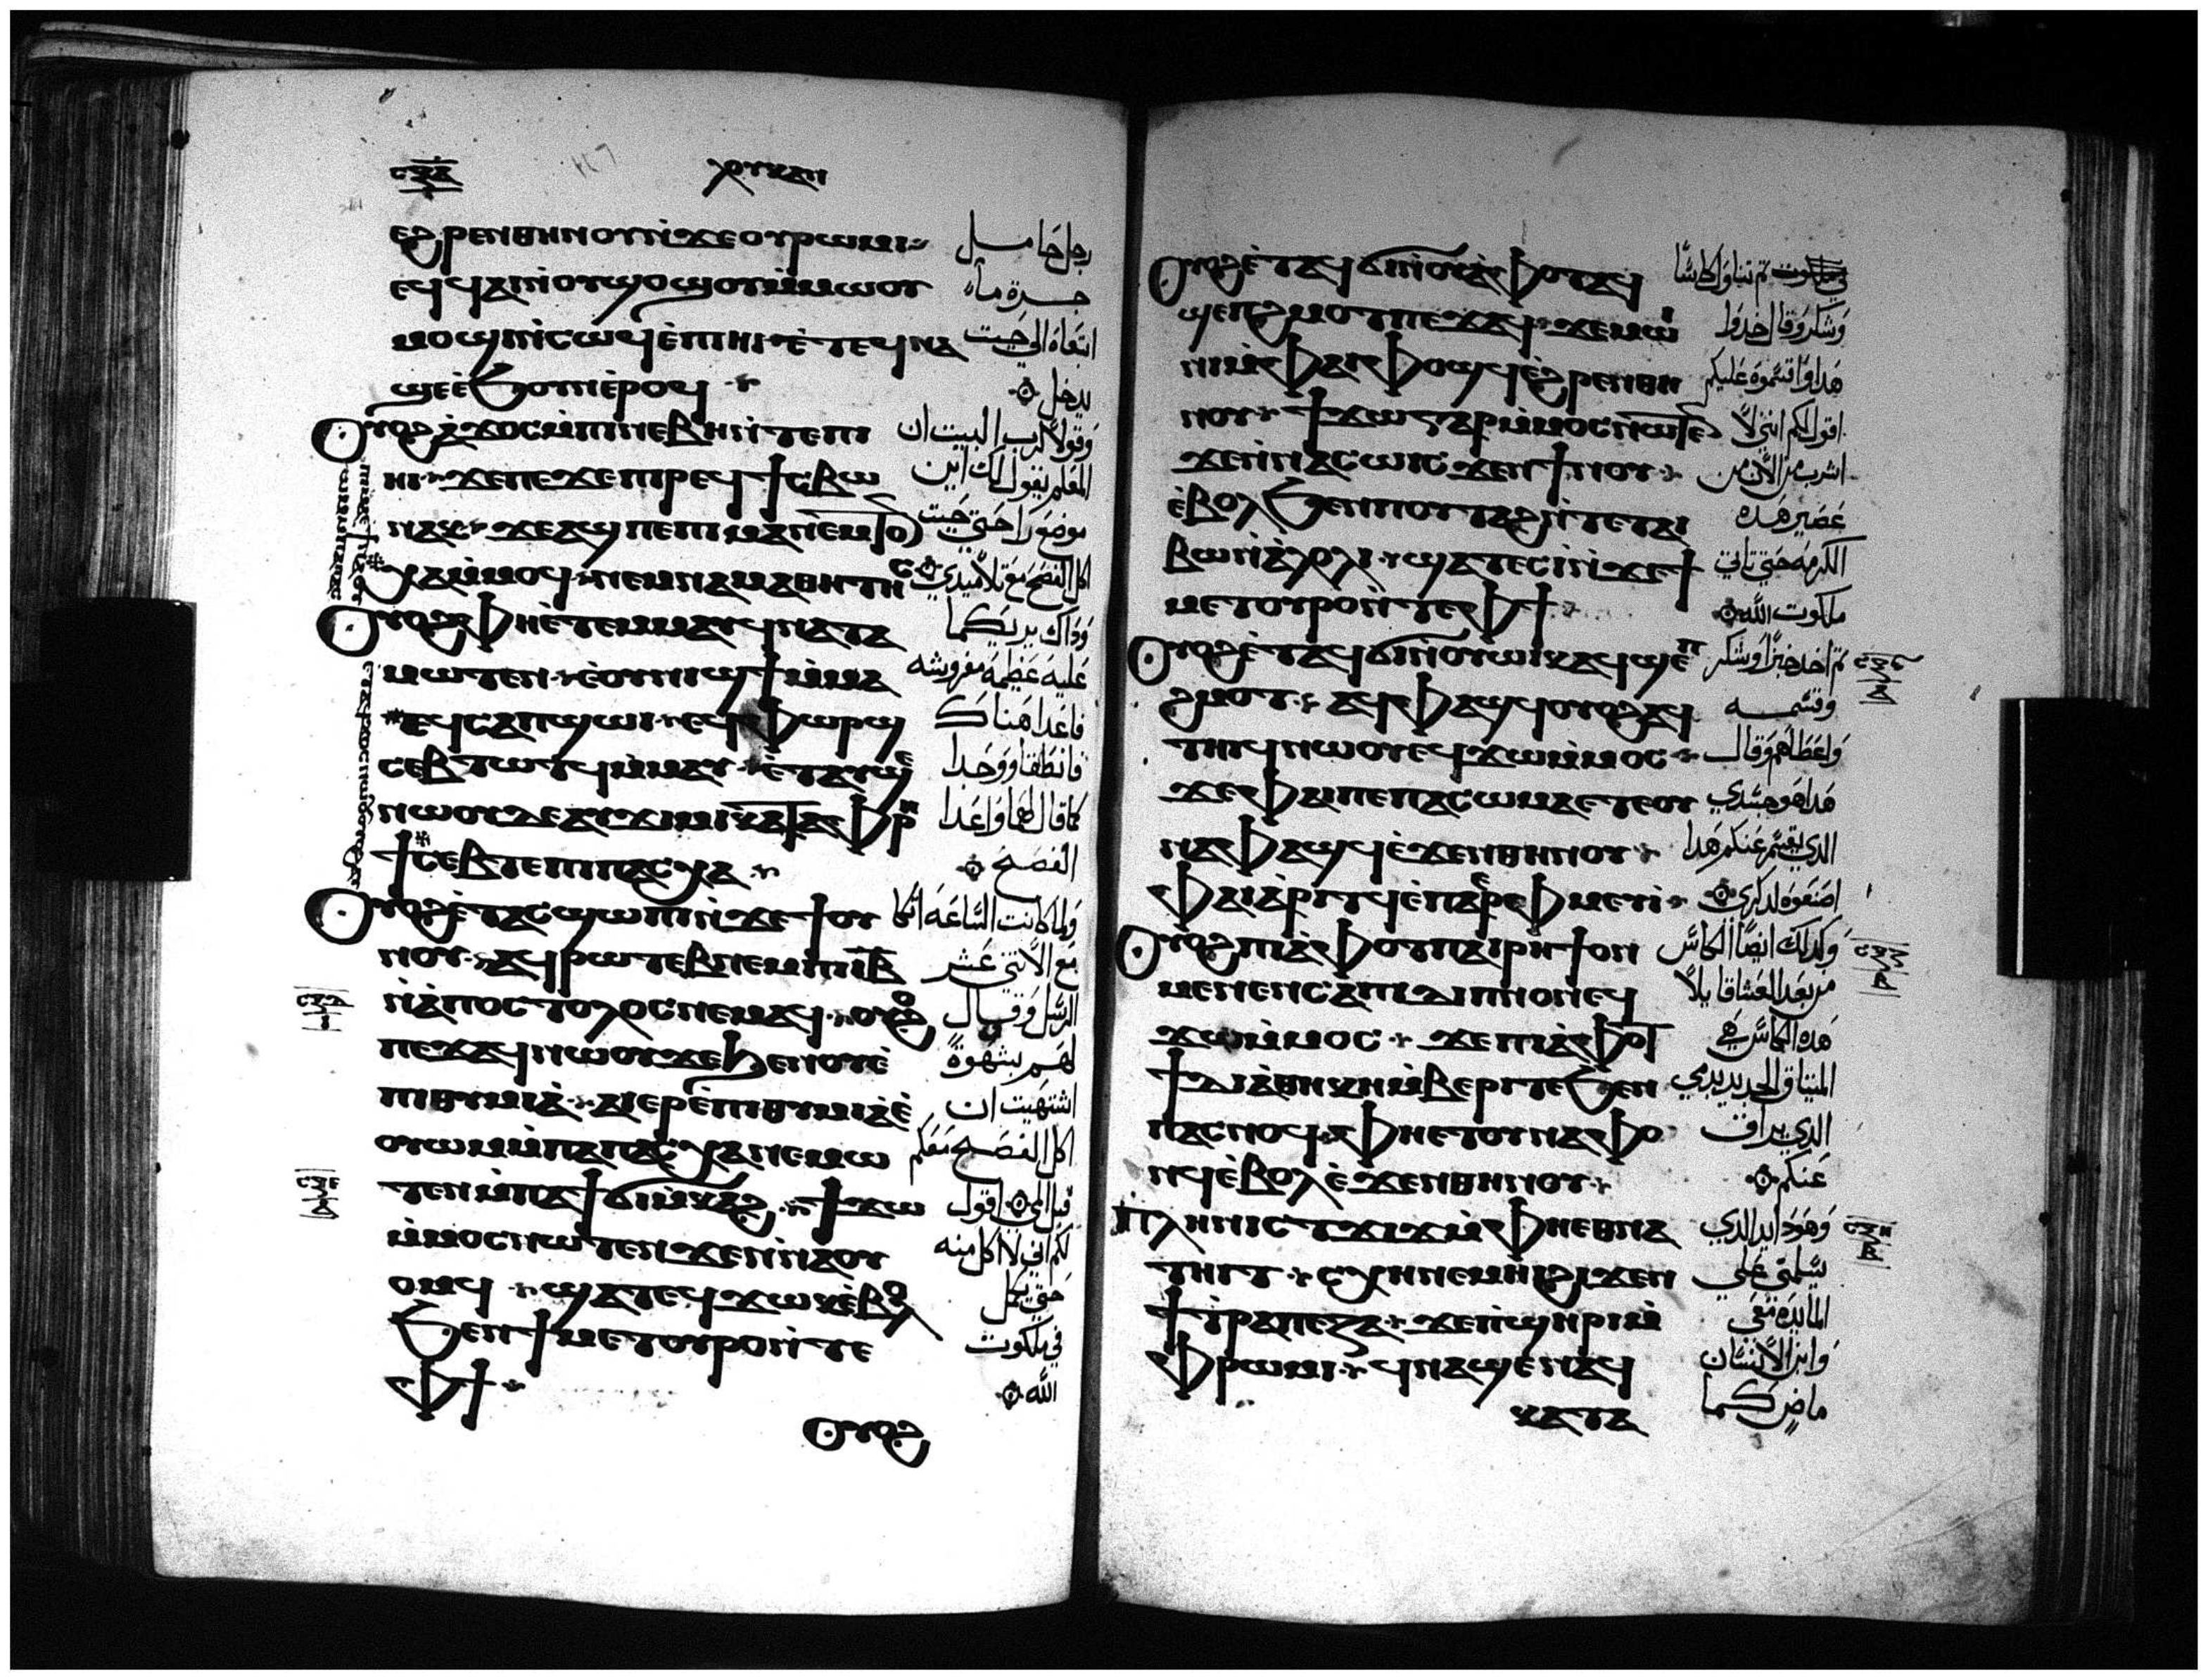 ⲗⲟⲩⲕⲁⲛ
ⲉϩⲣⲉⲛⲑⲏⲛⲟⲩ ⲛ̀ϫⲉⲟⲩⲣⲱⲙⲓ
ⲉϥϥⲁⲓ ⲛ̀ⲟⲩϣⲟϣⲟⲩ ⲙ̀ⲙⲱⲟⲩ
ⲙⲟϣⲓ ⲛ̀ⲥⲱϥ ⲉ̀ⲡⲓⲏⲓ ⲉ̀ⲧⲉϥⲛⲁ
ϣⲉ ⲉ̀ϧⲟⲩⲛ ⲉ̀ⲣⲟϥ
ⲟⲩⲟϩ ⲁ̀ϫⲟⲥ ⲙ̀ⲡⲓⲛⲉⲃⲏⲓ ⲛ̀ⲧⲉⲡⲓ
ⲏⲓ ϫⲉⲡⲉϫⲉ ⲡⲓⲣⲉϥϯⲥⲃⲱ
ⲛⲁⲕ ϫⲉⲁϣ ⲡⲉ ⲡⲓⲙⲁⲛ̀ⲉⲙⲧⲟ
ⲟⲩⲟϩ ⲫⲏ ⲉ̀ⲧⲉⲙⲙⲁⲩ ϥⲛⲁⲧⲁ
ⲙⲱⲧⲉⲛ ⲉ̀ⲟⲩⲛⲓϣϯ ⲙ̀ⲙⲁ
ⲉϥⲥⲁⲡϣⲱⲓ ⲉϥⲫⲱⲣϣ
ⲥⲉⲃⲧⲱⲧϥ ⲙ̀ⲙⲁⲩ ⲉ̀ⲧⲁⲩϣⲉ
ⲛⲱⲟⲩ ⲇⲉ ⲁⲩϫⲓⲙⲓ ⲕⲁⲧⲁⲫⲣⲏ
ϯ ⲥⲉⲃⲧⲉ ⲡⲓⲡⲁⲥⲭⲁ
ⲟⲩⲟϩ ⲉ̀ⲧⲁⲥϣⲱⲡⲓ ⲛ̀ϫⲉϯⲟⲩ
ⲛⲟⲩ ⲁϥⲣⲱⲧⲉⲃ ⲛⲉⲙ ⲡⲓⲓ̅ⲃ̅
ⲛ̀ⲁ̀ⲡⲟⲥⲧⲟⲗⲟⲥ ⲛⲉⲙⲁϥ ⲟⲩⲟϩ
ⲡⲉϫⲁϥ ⲛⲱⲟⲩ ϫⲉϧⲉⲛⲟⲩⲉ̀
ⲡⲓⲑⲩⲙⲓⲁ̀ ⲁⲓⲉⲣⲉ̀ⲡⲓⲑⲩⲙⲓⲁ̀ ⲉ̀
ⲟⲩⲱⲙ ⲙ̀ⲡⲁⲓⲡⲁⲥⲭⲁ ⲛⲉⲙⲱ
ⲧⲉⲛ ⲙ̀ⲡⲁϯϭⲓⲙ̀ⲕⲁϩ ϯϫⲱ
ⲙ̀ⲙⲟⲥ ⲛⲱⲧⲉⲛ ϫⲉⲛ̀ⲛⲁⲟⲩ
ⲟⲙϥ ϣⲁⲧⲉϥϫⲱⲕ ⲉ̀ⲃⲟⲗ
ϧⲉⲛ ϯⲙⲉⲧⲟⲩⲣⲟ ⲛ̀ⲧⲉ
ⲫϯ
ⲟⲩⲟϩ
رجل حامل
جرة ماء
اتبعاه الى حيت
يدخل
وقولا لرب البيت ان
المعلم يقول لك اين
موضع راحتي حيت
اكل الفصح مع تلاميدي
وداك يريكما
عليه عظيمه مفروشه
فاعدا هناك
فانطلقا ووجدا
كما قال لهما واعدا
الفصح
ولما كانت الساعه اتكا
مع الاثني عشر
الرسل وقال
لهم بشهوة
اشتهيت ان
اكل الفصح معكم
قبل المي اقول
لكم اني لا اكل منه
حتي يكمل
في ملكوت
الله
ⲟⲩⲟϩ ⲉ̀ⲧⲁϥϭⲓ ⲛ̀ⲟⲩⲁ̀ⲫⲟⲧ ⲁϥ
ϣⲉⲡϩⲙⲟⲧ ⲡⲉϫⲁϥ ϫⲉⲙⲱ
ⲛⲓⲙ̀ⲫⲁⲓ ⲫⲟϣϥ ⲉ̀ϩⲣⲉⲛⲑⲏ
ⲛⲟⲩ ϯϫⲱ ⲅⲁⲣ ⲙ̀ⲙⲟⲥ ⲛⲱⲧⲉⲛ
ϫⲉⲛ̀ⲛⲁⲥⲱ ⲓⲥϫⲉⲛ ϯⲛⲟⲩ
ⲉ̀ⲃⲟⲗ ϧⲉⲛ ⲡⲟⲩⲧⲁϩ ⲛ̀ⲧⲉⲧⲁⲓ
ⲃⲱ ⲛ̀ⲁ̀ⲗⲟⲗⲓ ϣⲁⲧⲉⲥⲓ̀ ⲛ̀ϫⲉϯ
ⲙⲉⲧⲟⲩⲣⲟ ⲛ̀ⲧⲉⲫϯ
ⲟⲩⲟϩ ⲉ̀ⲧⲁϥϭⲓ ⲛ̀ⲟⲩⲱⲓⲕ ⲁϥϣⲉⲡ
ϩⲙⲟⲧ ⲁϥⲫⲁϣϥ ⲟⲩⲟϩ ⲁϥ
ⲧⲏⲓϥ ⲛⲱⲟⲩ ⲉϥϫⲱ ⲙ̀ⲙⲟⲥ
ϫⲉⲫⲁⲓ ⲡⲉ ⲡⲁⲥⲱⲙⲁ ⲉⲧⲉⲟⲩ
ⲛⲁⲫⲁϣϥ ⲉ̀ϫⲉⲛⲑⲏⲛⲟⲩ
ⲫⲁⲓ ⲁ̀ⲣⲓⲧϥ ⲉ̀ⲡⲁⲉⲣⲫⲙⲉⲩⲓ̀
ⲟⲩⲟϩ ⲡⲓⲁ̀ⲫⲟⲧ ⲡⲁⲓⲣⲏϯ ⲟⲛ
ⲙⲉⲛⲉⲛⲥⲁ ⲡⲓⲇⲓⲡⲛⲟⲛ ⲉϥ
ϫⲱ ⲙ̀ⲙⲟⲥ ϫⲉⲡⲁⲓⲁ̀ⲫⲟⲧ
ϯⲇⲓⲁ̀ⲑⲏⲕⲏ ⲙ̀ⲃⲉⲣⲓ ⲧⲉ ϧⲉⲛ
ⲡⲁⲥⲛⲟϥ ⲫⲏ ⲉⲧⲟⲩⲛⲁⲫⲟ
ⲛϥ ⲉ̀ⲃⲟⲗ ⲉ̀ϫⲉⲛⲑⲏⲛⲟⲩ
ⲡⲗⲏⲛ ⲓⲥ ⲧϫⲓϫ ⲙ̀ⲫⲏ ⲉⲑⲛⲁ
ⲧⲏⲓⲧ ⲥⲭⲏ ⲛⲉⲙⲏⲓ ϩⲓϫⲉⲛ
ϯⲧⲣⲁⲡⲉⲍⲁ ϫⲉⲡ̀ϣⲏⲣⲓ ⲙ̀
ⲫⲣⲱⲙⲓ ϥⲛⲁϣⲉⲛⲁϥ
ⲕⲁⲧⲁ
تم تناول كاسا
وشكر وقال خدوا
هدا واقسموه عليكم
اقول لكم انني لا
اشرب من الان من
عصير هده
الكرمه حتي تاتي
ملكوت الله
تم اخد خبزا وشكر
وقسمه
واعطاهم وقال
هدا هو جسدي
الدي يقسم عنكم هدا
اصنعوه لدكري
وكدلك ايضا الكاس
من بعد العشا قايلا
هده الكاس هي
الميتاق الجديد بدمي
الدي يراق
عنكم
وهودا يد الدي
يسلمني علي
المايدة معي
وابن الانسان
ماض كما